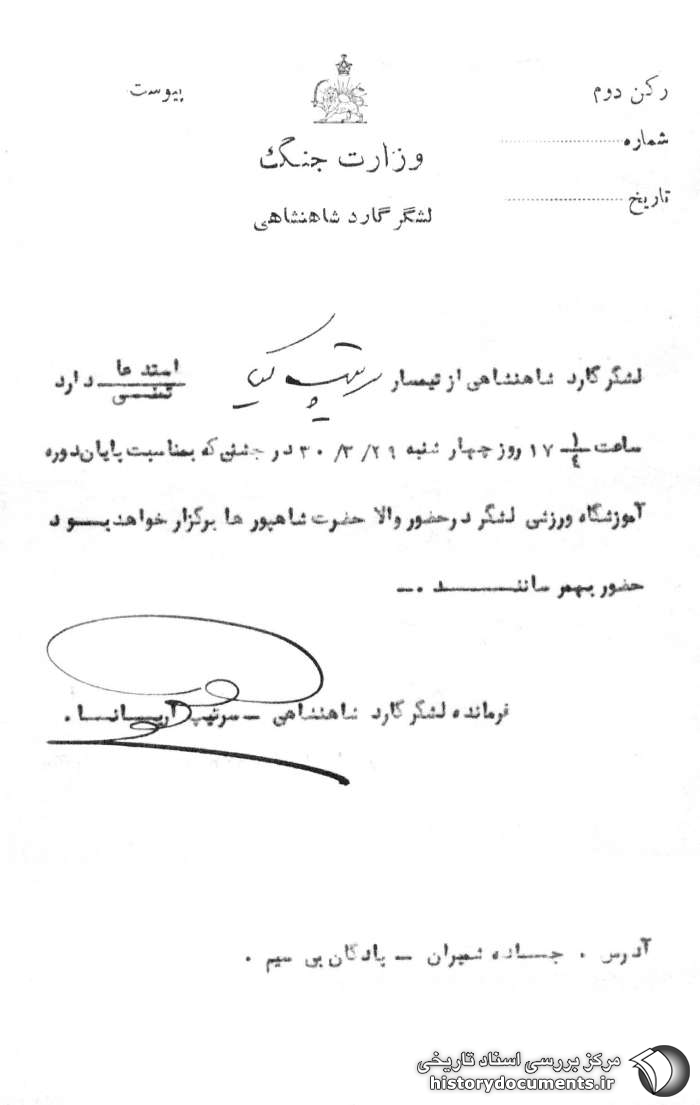 رکن دوم
پیوست
شماره
تاریخ
وزارت جنگ
لشگر گارد شاهنشاهی
لشگر گارد شاهنشاهی از تیمسار سرتیپ کیا استدعا / تمنی دارد
ساعت ۱/۴ ۱۷ روز چهارشنبه ۳۰/۳/۲۹ در جشنی که بمناسبت پایان دوره
آموزشگاه ورزشی لشگر در حضور والا حضرت شاهپورها برگزار خواهد بود
حضور بهمرسانند .ـ
فرمانده لشگر گارد شاهنشاهی ـ سرتیپ آریانا .
آدرس . جاده شمیران ـ پادگان بی سیم .
مرکز بررسی اسناد تاریخی
historydocuments.ir